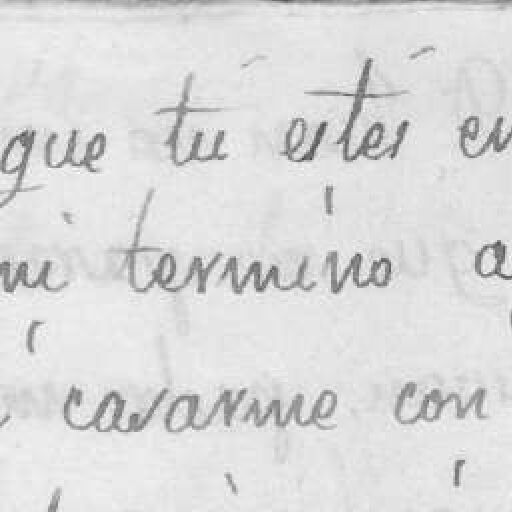 que tú estés en
mi termino a
casarme con